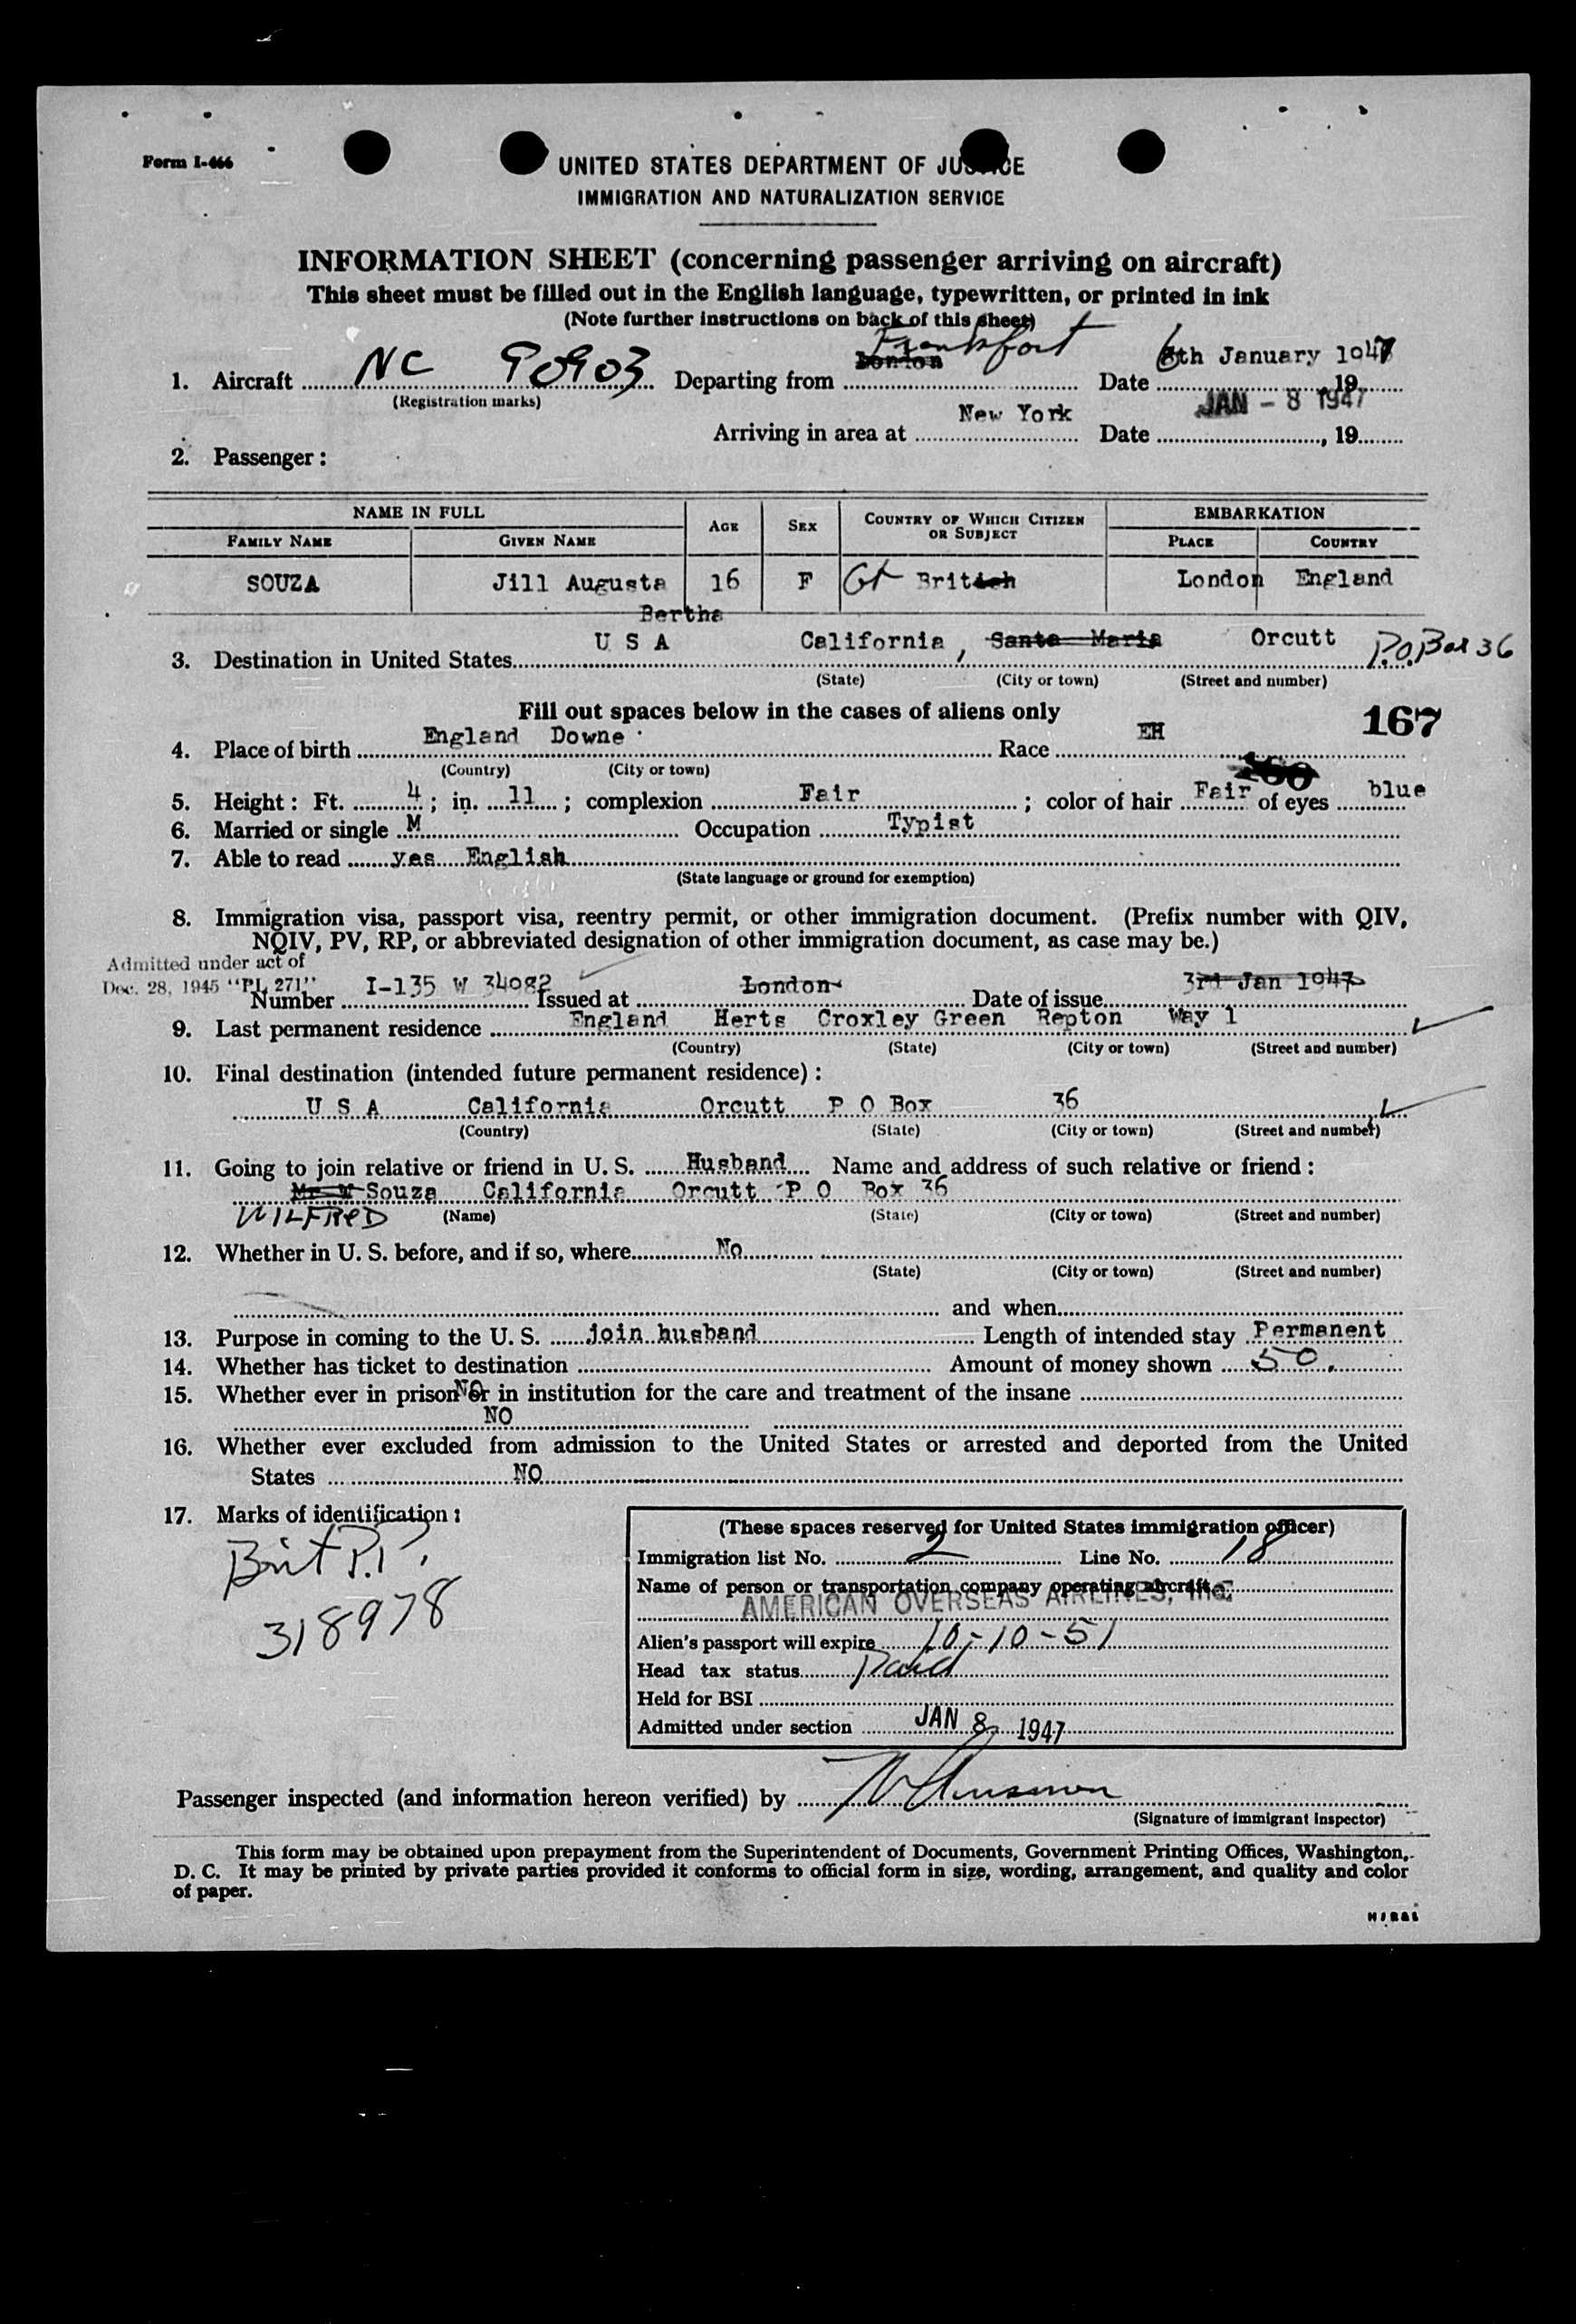 Form I-466
UNITED STATES DEPARTMENT OF JUSTICE
IMMIGRATION AND NATURALIZATION SERVICE
INFORMATION SHEET (concerning passenger arriving on aircraft)
This sheet must be filled out in the English language, typewritten, or printed in ink
(Note further instructions on back of this sheet)
1. Aircraft NC 90903 Departing from London Frankfort Date 6th January 1947 , 19
(Registration marks)
Arriving in area at New York Date JAN - 8 1947 , 19
2. Passenger :
NAME IN FULL AGE SEX COUNTRY OF WHICH CITIZEN OR SUBJECT EMBARKATION
FAMILY NAME GIVEN NAME PLACE COUNTRY
SOUZA Jill Augusta Bertha 16 F Gt British London England
3. Destination in United States U S A California , Santa Maria Orcutt P.O. Box 36
(State) (City or town) (Street and number)
Fill out spaces below in the cases of aliens only
167
4. Place of birth England Downe Race EH
(Country) (City or town)
160
5. Height : Ft. 4 ; in. 11 ; complexion Fair ; color of hair Fair of eyes blue
6. Married or single M Occupation Typist
7. Able to read yes English
(State language or ground for exemption)
8. Immigration visa, passport visa, reentry permit, or other immigration document. (Prefix number with QIV,
NQIV, PV, RP, or abbreviated designation of other immigration document, as case may be.)
Admitted under act of
Dec. 28, 1945 "PL 271"
Number I-135 W 34082 Issued at London Date of issue 3rd Jan 1947
9. Last permanent residence England Herts Croxley Green Repton Way 1
(Country) (State) (City or town) (Street and number)
10. Final destination (intended future permanent residence) :
U S A California Orcutt P O Box 36
(Country) (State) (City or town) (Street and number)
11. Going to join relative or friend in U. S. Husband Name and address of such relative or friend :
Mr W Souza California Orcutt P O Box 36
WILFRED (Name) (State) (City or town) (Street and number)
12. Whether in U. S. before, and if so, where No
(State) (City or town) (Street and number)
and when
13. Purpose in coming to the U. S. join husband Length of intended stay Permanent
14. Whether has ticket to destination Amount of money shown 50.
15. Whether ever in prison NO or in institution for the care and treatment of the insane
NO
16. Whether ever excluded from admission to the United States or arrested and deported from the United
States NO
17. Marks of identification :
Brit P.P.
318978
(These spaces reserved for United States immigration officer)
Immigration list No. 2 Line No. 18
Name of person or transportation company operating aircraft
AMERICAN OVERSEAS AIRLINES, Inc.
Alien's passport will expire 10-10-51
Head tax status Paid
Held for BSI
Admitted under section JAN 8, 1947
Passenger inspected (and information hereon verified) by
(Signature of immigrant inspector)
This form may be obtained upon prepayment from the Superintendent of Documents, Government Printing Offices, Washington,
D. C. It may be printed by private parties provided it conforms to official form in size, wording, arrangement, and quality and color
of paper.